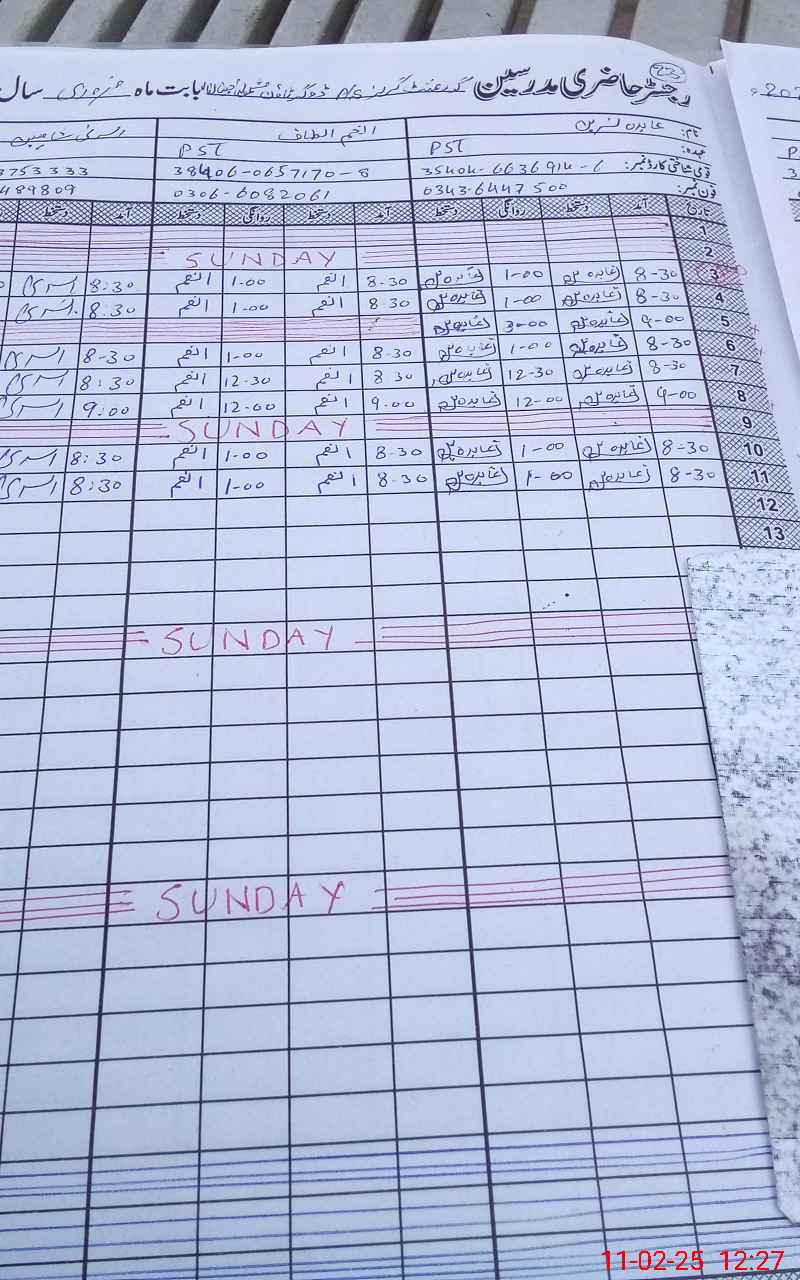 رجسٹر حاضری مدرسین گورنمنٹ گرلز P/S بابت ماہ فروری سال
نام: عابدہ نسرین انعم الطاف
عہدہ: PST PST
قومی شناختی کارڈ نمبر: 35404-6636914-6 38406-0657170-8 3753333
فون نمبر: 0343-6447500 0306-6082061 489809
تاریخ آمد دستخط روانگی دستخط آمد دستخط روانگی دستخط آمد دستخط
1
2 SUNDAY
3 8-30 عابدہ 1-00 عابدہ 8-30 انعم 1-00 انعم 8:30
4 8-30 عابدہ 1-00 عابدہ 8-30 انعم 1-00 انعم 8:30
5 9-00 عابدہ 3-00 عابدہ
6 8-30 عابدہ 1-00 عابدہ 8-30 انعم 1-00 انعم 8-30
7 8-30 عابدہ 12-30 عابدہ 8 30 انعم 12-30 انعم 8:30
8 9-00 عابدہ 12-00 عابدہ 9.00 انعم 12-00 انعم 9:00
9 SUNDAY
10 8-30 عابدہ 1-00 عابدہ 8-30 انعم 1-00 انعم 8:30
11 8-30 عابدہ 1-00 عابدہ 8-30 انعم 1-00 انعم 8:30
12
13
SUNDAY
SUNDAY
11-02-25 12:27